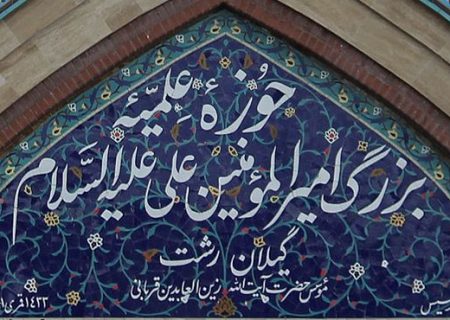 حوزهٔ علمیّهٔ
بزرگ امیرالمؤمنین علی علیه السّلام
گیلان رشت
مؤسس حضرت آیت الله زین العابدین قربانی
۱۴۲۳ قمری